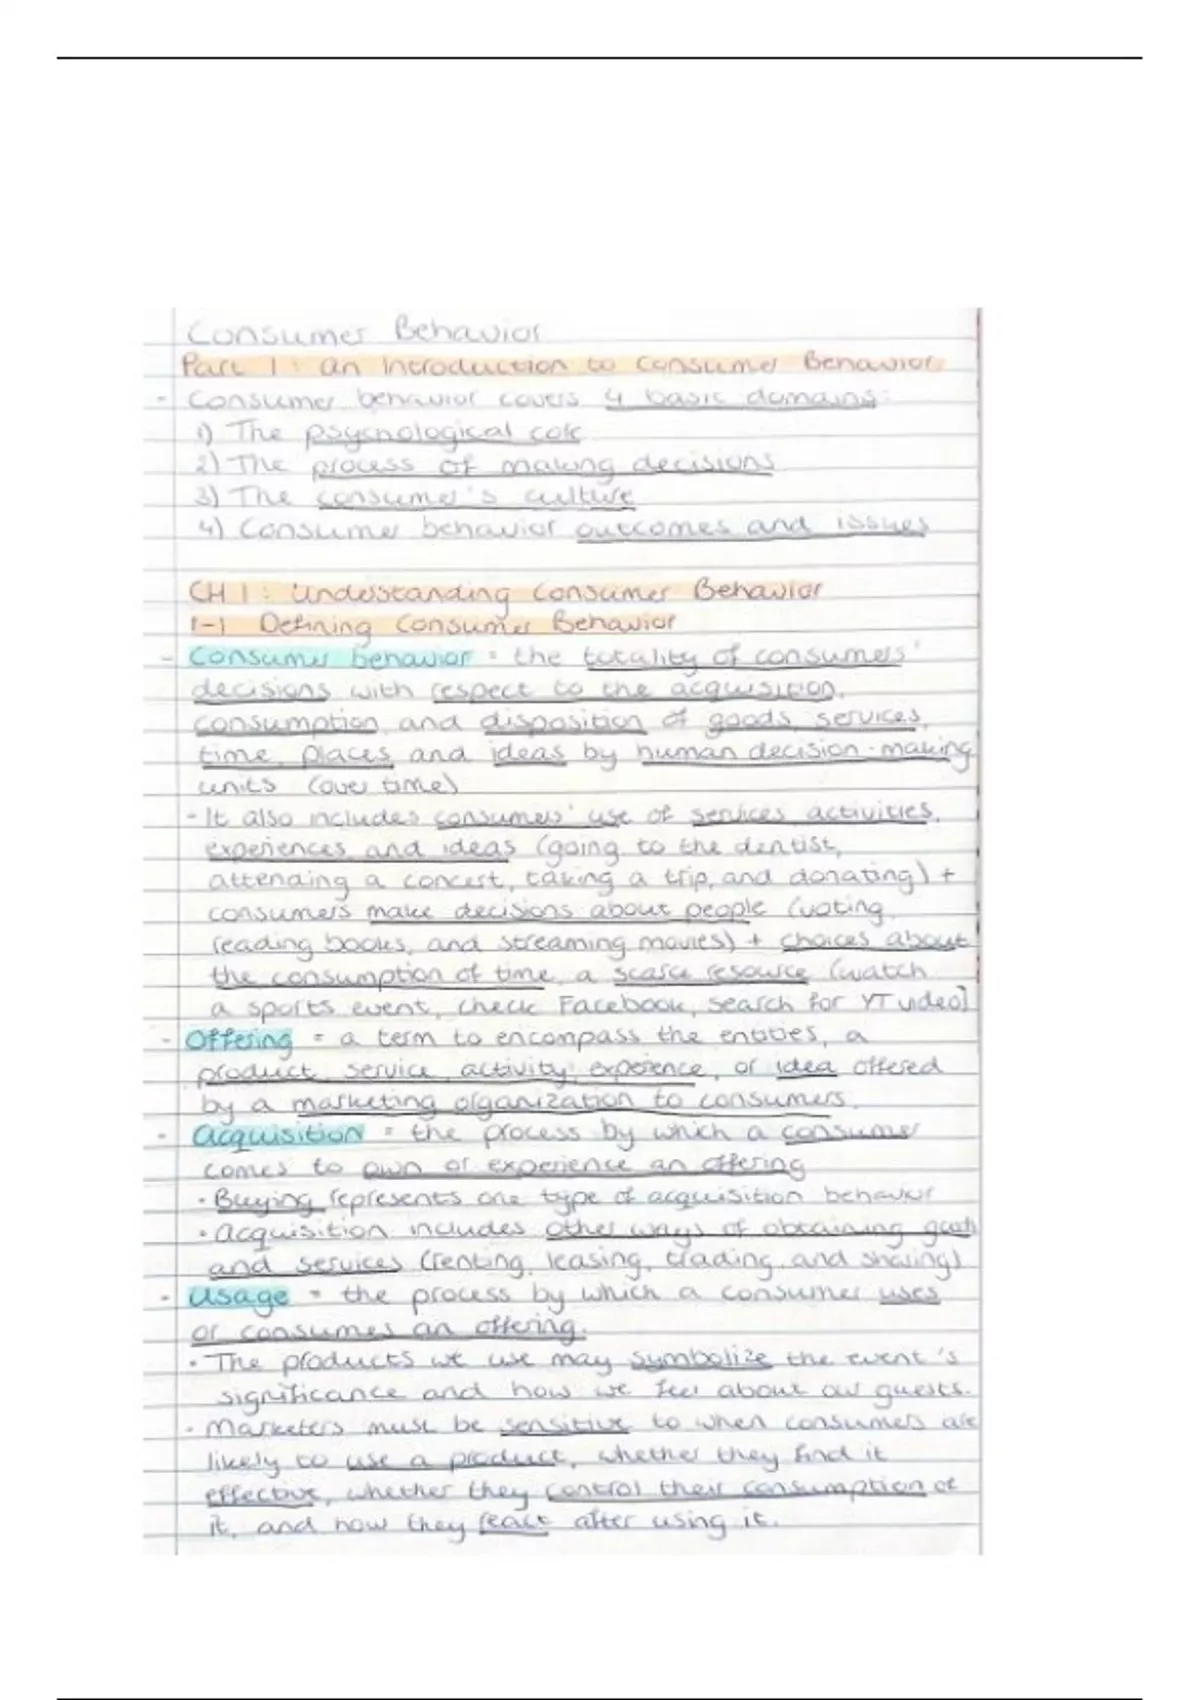 Consumer Behavior
Part 1: an introduction to consumer Behavior
- Consumer behavior covers 4 basic domains:
1) The psychological core
2) The process of making decisions
3) The consumer's culture
4) Consumer behavior outcomes and issues
CH 1: Understanding Consumer Behavior
1-1 Defining Consumer Behavior
- Consumer behavior = the totality of consumers'
decisions with respect to the acquisition,
consumption, and disposition of goods, services,
time, places and ideas by human decision-making
units (over time)
- It also includes consumers' use of services activities,
experiences, and ideas (going to the dentist,
attending a concert, taking a trip, and donating) +
consumers make decisions about people (voting,
reading books, and streaming movies) + choices about
the consumption of time, a scarce resource (watch
a sports event, check Facebook, search for YT video)
- Offering = a term to encompass the entities, a
product, service, activity, experience, or idea offered
by a marketing organization to consumers.
- acquisition = the process by which a consumer
comes to own or experience an offering
• Buying represents one type of acquisition behavior
• acquisition includes other ways of obtaining goods
and services (renting, leasing, trading, and sharing)
- Usage = the process by which a consumer uses
or consumes an offering.
• The products we use may symbolize the event's
significance and how we feel about our guests.
• Marketers must be sensitive to when consumers are
likely to use a product, whether they find it
effective, whether they control their consumption of
it, and how they react after using it.